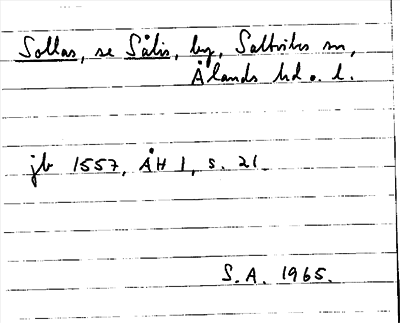 Sollas, se Sålis, by, Saltviks sn,
Ålands hd o. l.
jb 1557, ÅH 1, s. 21.
S.A. 1965.